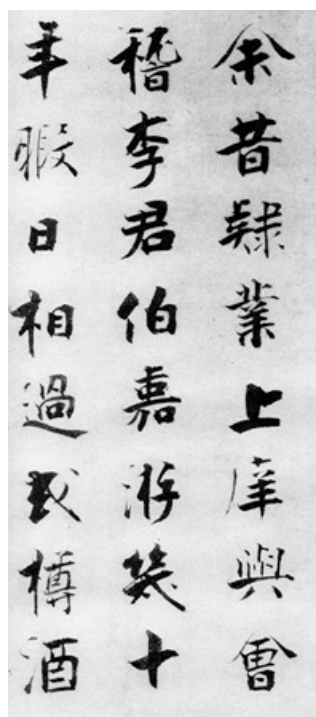 余昔隸業上庠與會
稽李君伯嘉游幾十
年暇日相過或樽酒